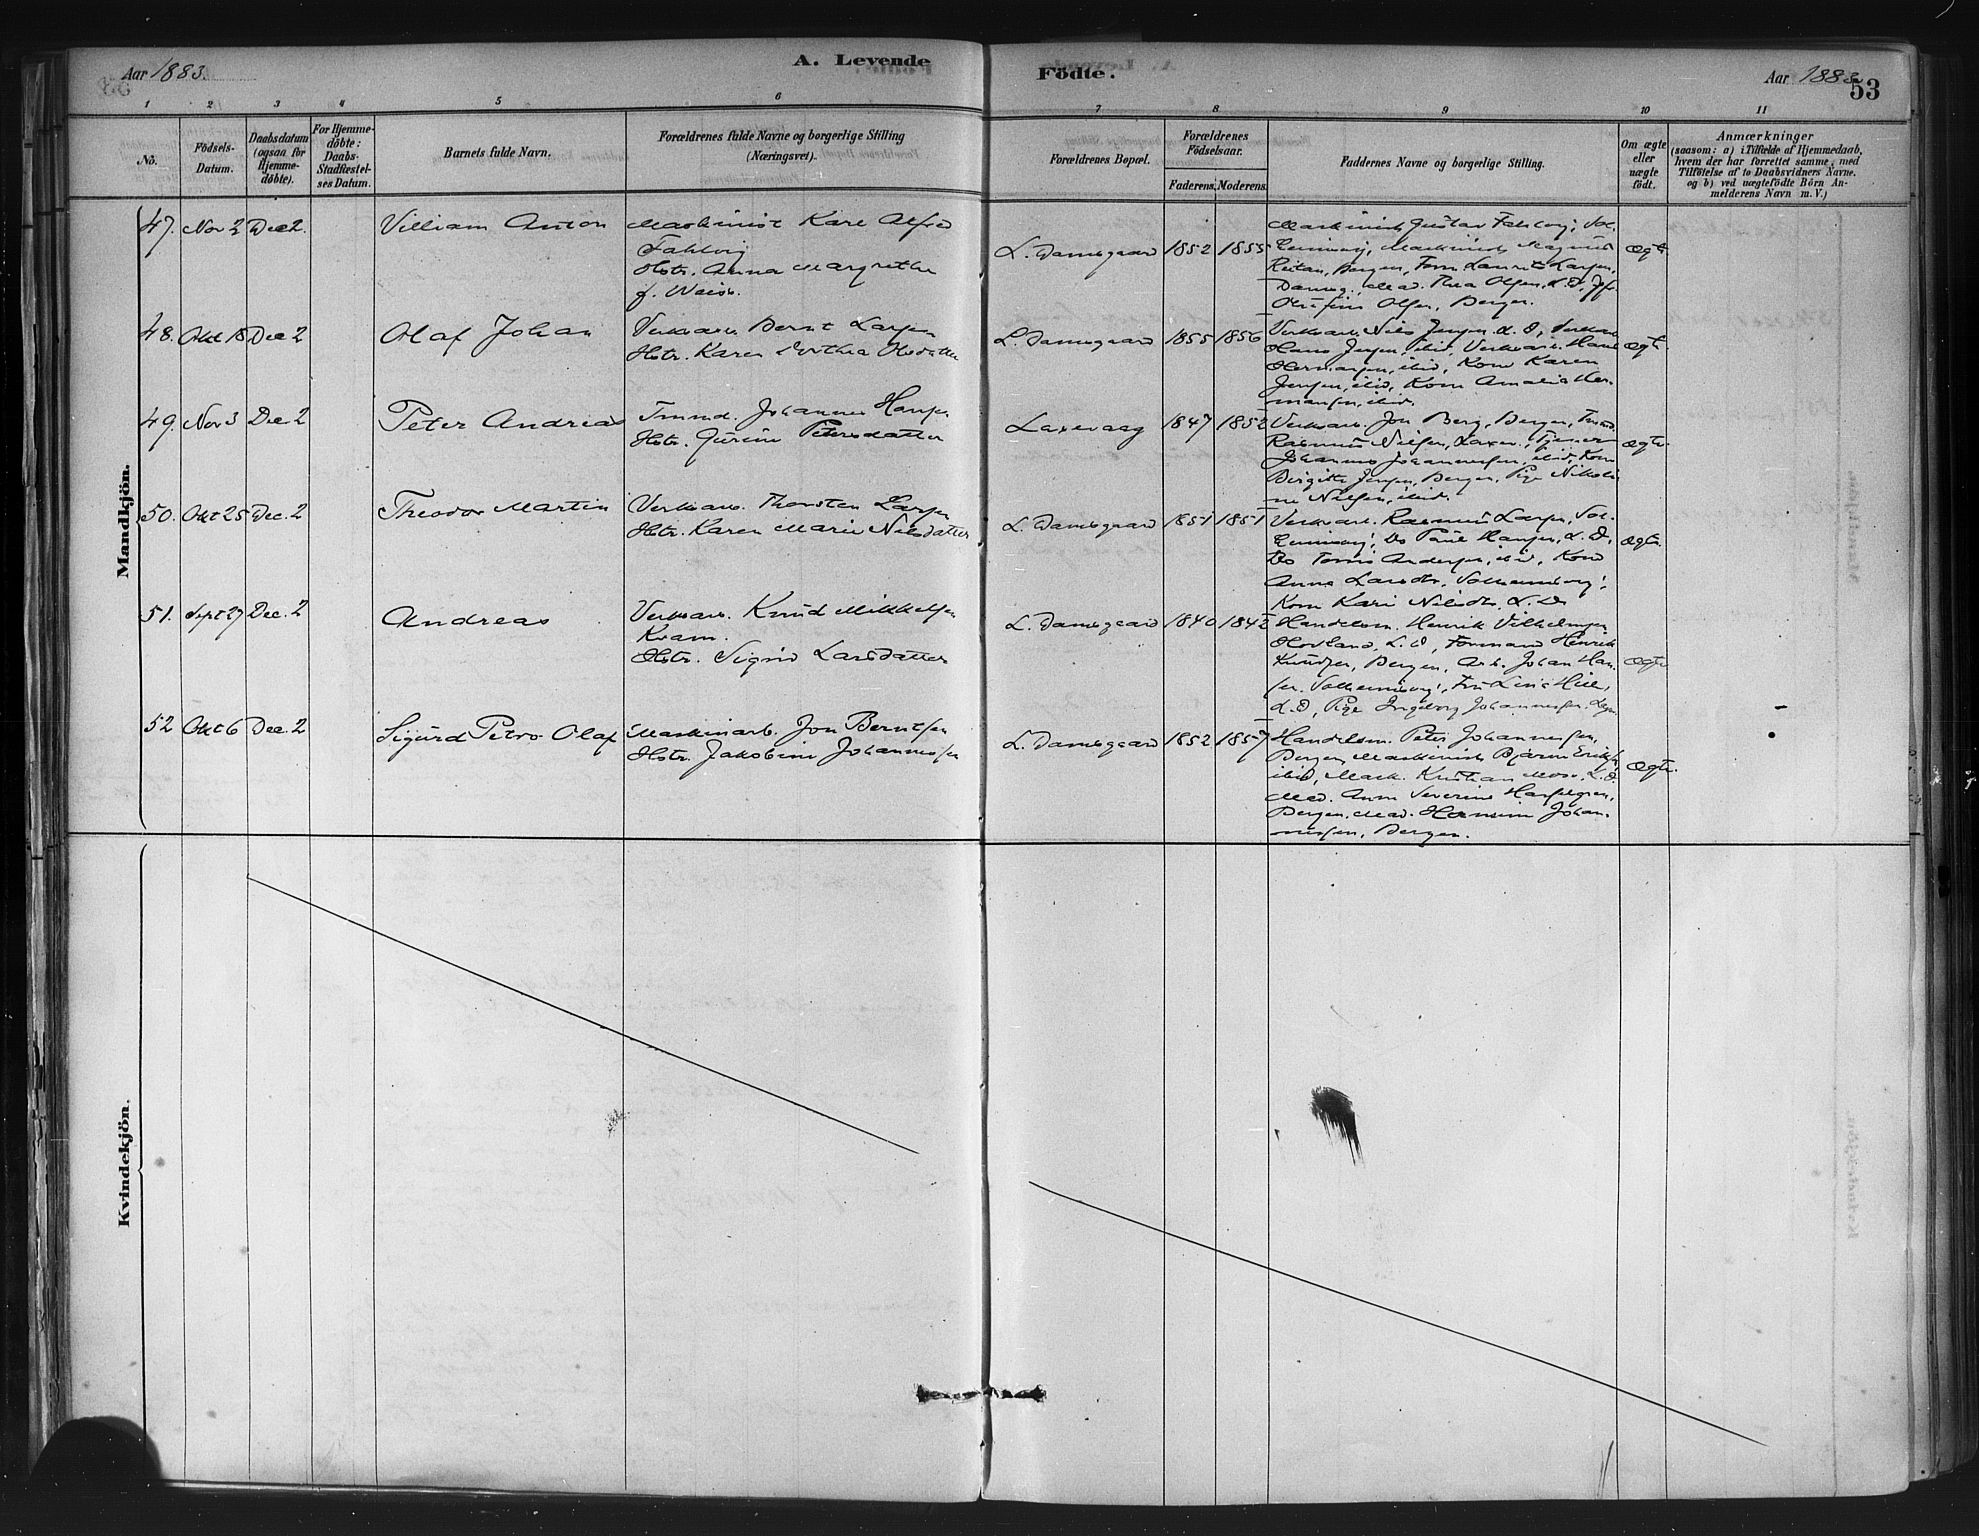 Aar 1883.
A. Levende
Födte.
Aar 1883
53
1 2 3 4 5 6 7 8 9 10 11
No.
Födsels-
Datum.
Daabsdatum
(ogsaa for
Hjemme-
döbte).
For Hjemme-
döbte:
Daabs-
Stadfæstel-
ses Datum.
Barnets fulde Navn.
Forældrenes fulde Navne og borgerlige Stilling
(Næringsvei).
Forældrenes Bopæl.
Forældrenes
Födselsaar.
Faderens. Moderens.
Faddernes Navne og borgerlige Stilling.
Om ægte
eller
uægte
födt.
Anmærkninger
(saasom: a) i Tilfælde af Hjemmedaab,
hvem der har forrettet samme, med
Tilföielse af to Daabsvidners Navne.
og b) ved uægtefödte Börn An-
melderens Navn m. V.)
Mandkjön.
47. Nov 2 Dec 2.
William Anton
Maskinist Karl Alfred
Fahlvig
Hstr. Anna Margrethe
f. Weis.
L. Damsgaard 1852 1855
Maskinist Gustav
Maskinist Magnus
Reitan, Bergen, Larsen,
Thea Olsen, L. D.
Olsen, Bergen.
ægte
48. Okt 18 Dec 2
Olaf Johan
Verksarb. Bernt Larsen
Hstr. Karen Dorthea Olsdatter
L. Damsgaard 1855 1856
Verksarb. Nils Jensen L. D.
Hans Jensen, ibid, Verksarb. Hans
Hermansen, ibid, Kone Karen
Jensen, ibid, Kone Amalia Her-
mansen, ibid.
ægte
49. Nov 3 Dec 2
Peter Andreas
Tmmd. Johannes Hansen
Hstr. Gurine Petersdatter
Laxevaag 1847 1852
Verksarb. Jon Berg, Bergen,
Rasmus Nielsen, Laxev.,
Johannes Johannessen, ibid, Kone
Birgitte Jensen, Bergen, Pige Nikoli-
ne Nilsen, ibid.
ægte
50. Okt 25 Dec. 2
Theodor Martin
Verksarb. Thorsten Larsen
Hstr. Karen Marie Nilsdatter
L. Damsgaard 1851 1851
Verksarb. Rasmus Larsen,
Do Paul Hansen, L. D,
Do Andersen, ibid, Kone
Anna Larsdtr,
Kone Kari Nilsdtr. L. D
ægte
51. Sept 27 Dec. 2
Andreas
Verksarb. Knud Mikkelsen
Kvam.
Hstr. Sigrid Larsdatter
L. Damsgaard 1840 1842
Handelsm. Henrik Vilhelmsen
Hovland, L. D, Formand Henrik
Knudsen, Bergen, Arb. Johan Han-
sen, Fru
L. D, Pige Ingeborg Johannessen,
ægte
52 Okt 6 Dec. 2
Sigurd Petro Olaf
Maskinarb. Jon Berntsen
Hstr. Jakobine Johannessen
L. Damsgaard 1852 1857
Handelsm. Peter Johannessen,
Bergen, Maskinist Bjarne
ibid, Mask. Kristian Moss, L. D.
Mad. Anna Severine
Bergen, Mad. Hansine Johan-
nessen, Bergen.
ægte.
Kvindekjön.